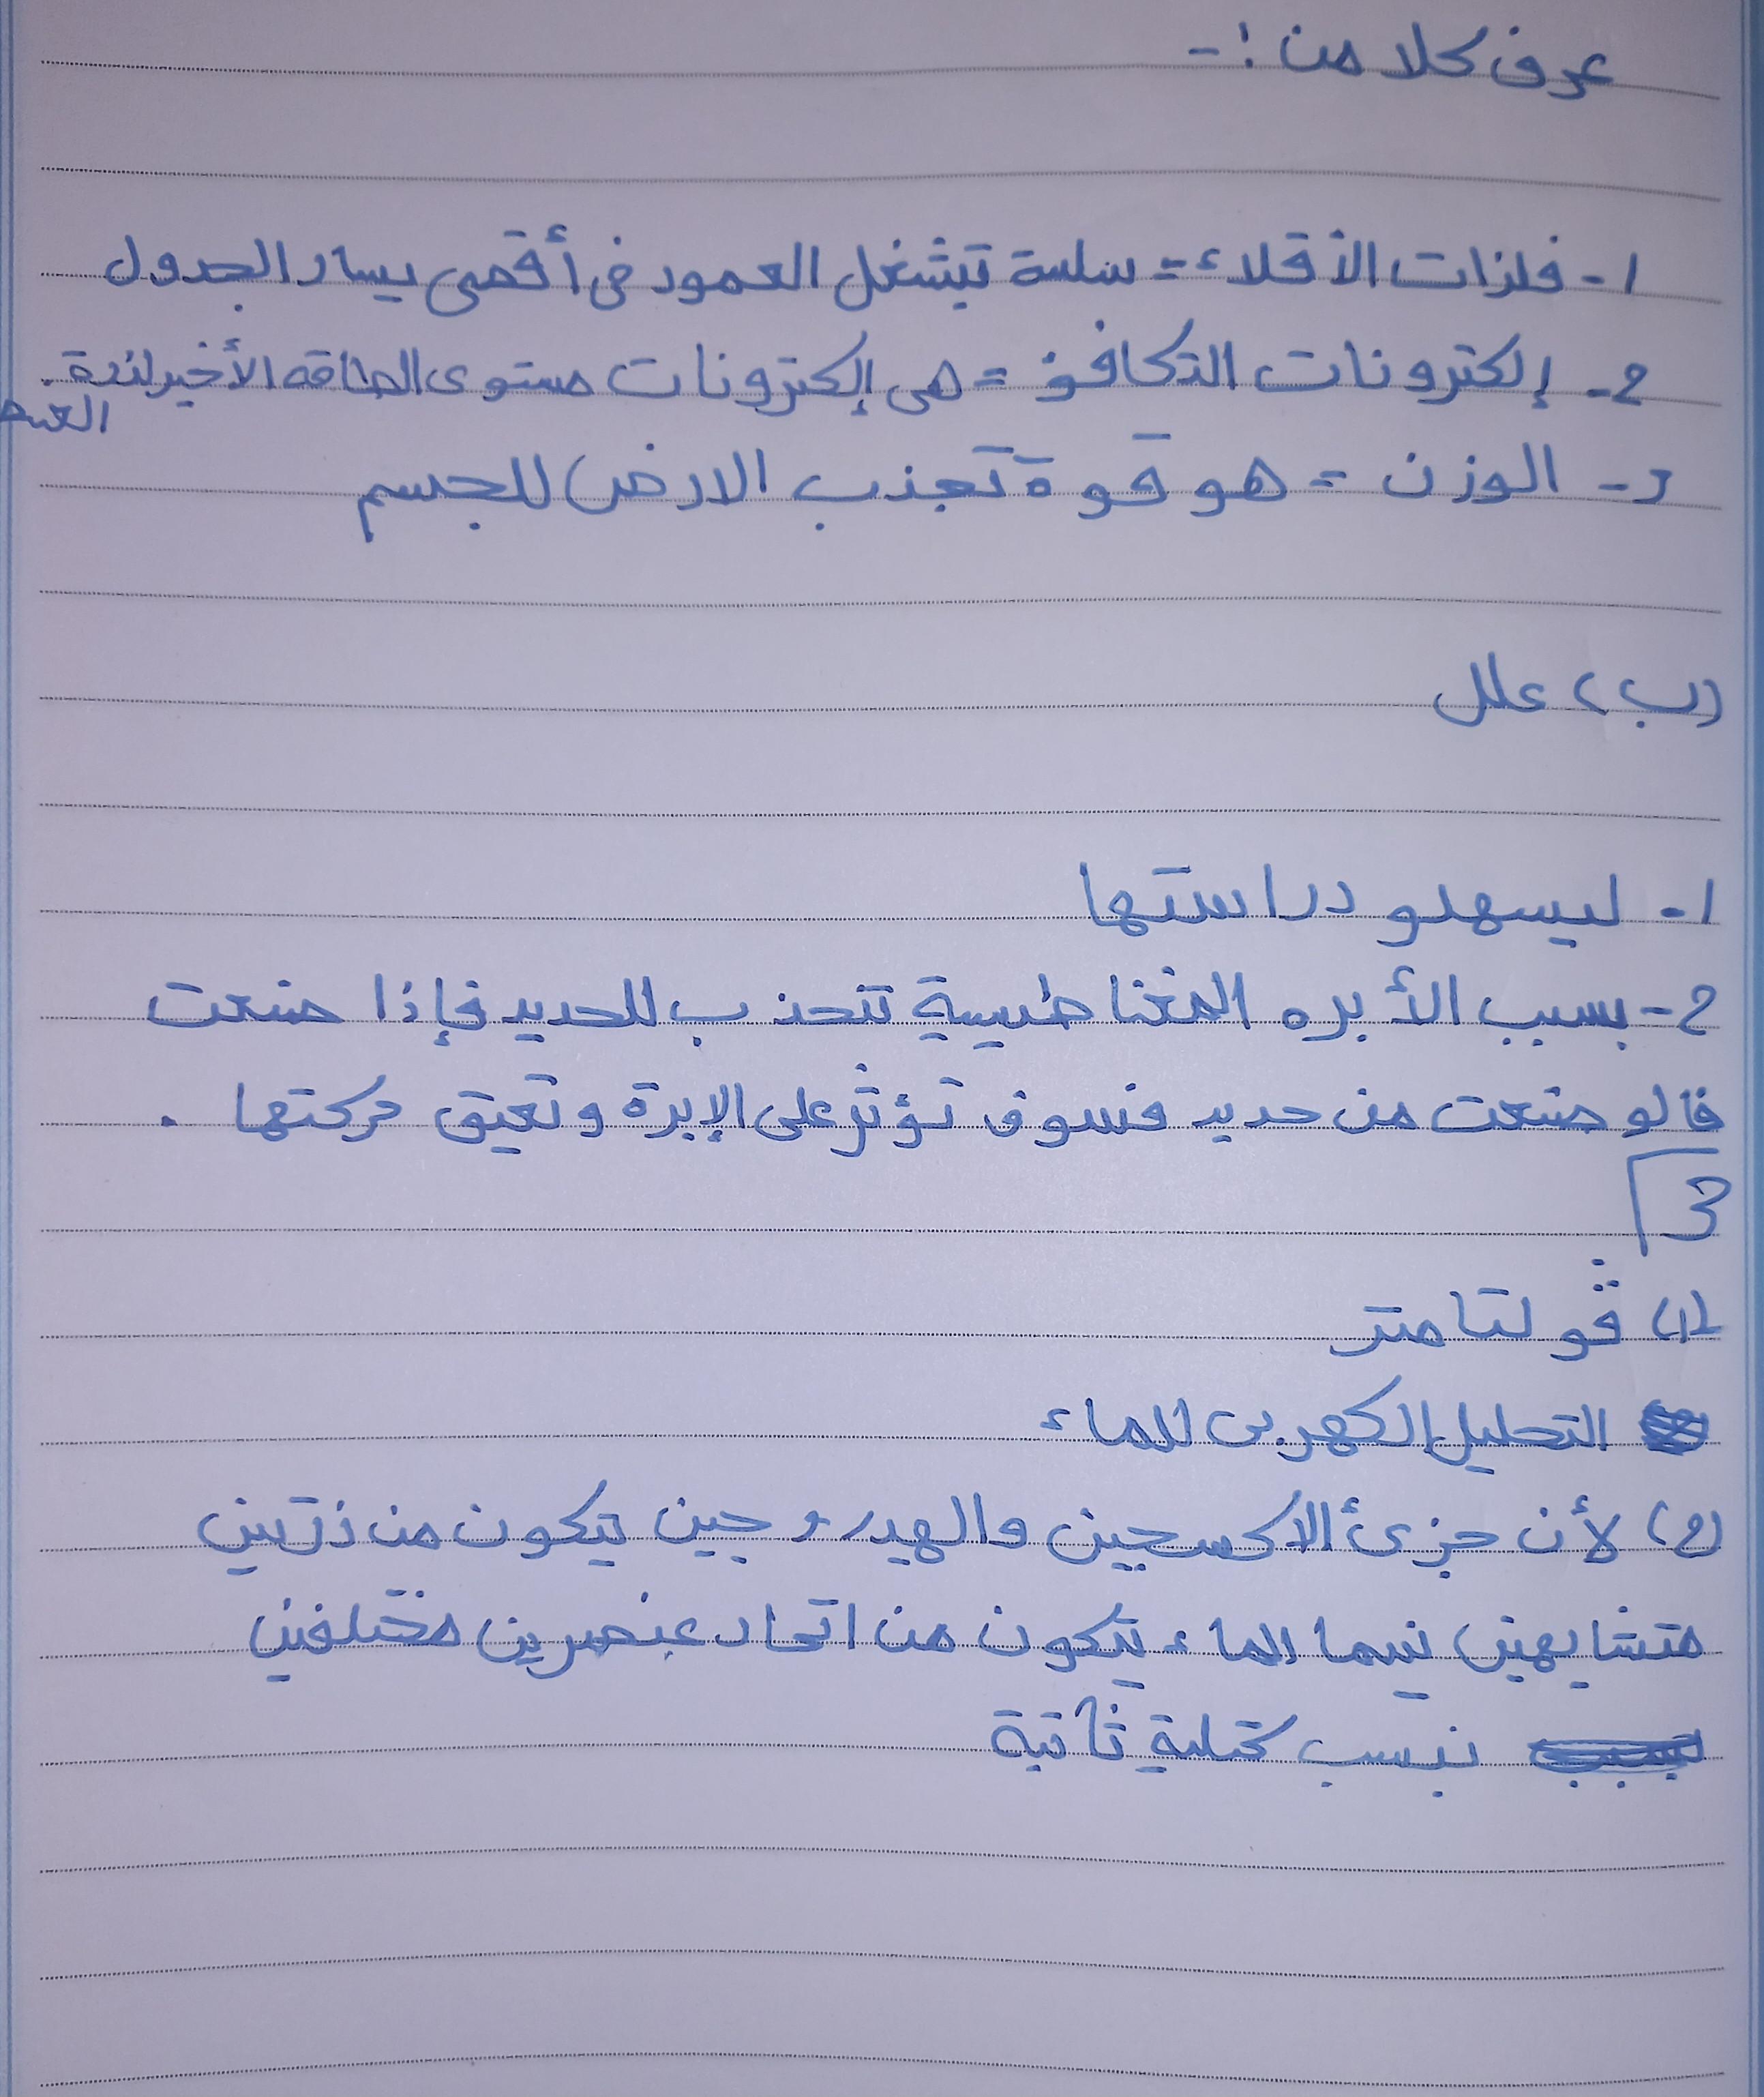 عرف كلا من :-
١- فلزات الأقلاء = سلسة تشغل العمود في أقصى يسار الجدول
٢- إلكترونات التكافؤ = هى إلكترونات مستوى الطاقه الأخير لذرة .
٣- الوزن = هو قوة تجذب الارض للجسم
(ب) علل
١- ليسهلو دراستها
٢- بسبب الأبره المغناطيسية تتجذب للحديد فإذا صنعت
فالو صنعت من حديد فسوف تؤثر على الإبرة وتعيق حركتها .
٣
(١) ڤولتامتر
التحليل الكهربى للماء
(٢) لأن جزئ الاكسجين والهيدروجين يتكون من ذرتين
متشابهين نيما الماء يتكون من اتحاد عنصرين مختلفين
بنسب كتلية ثابتة